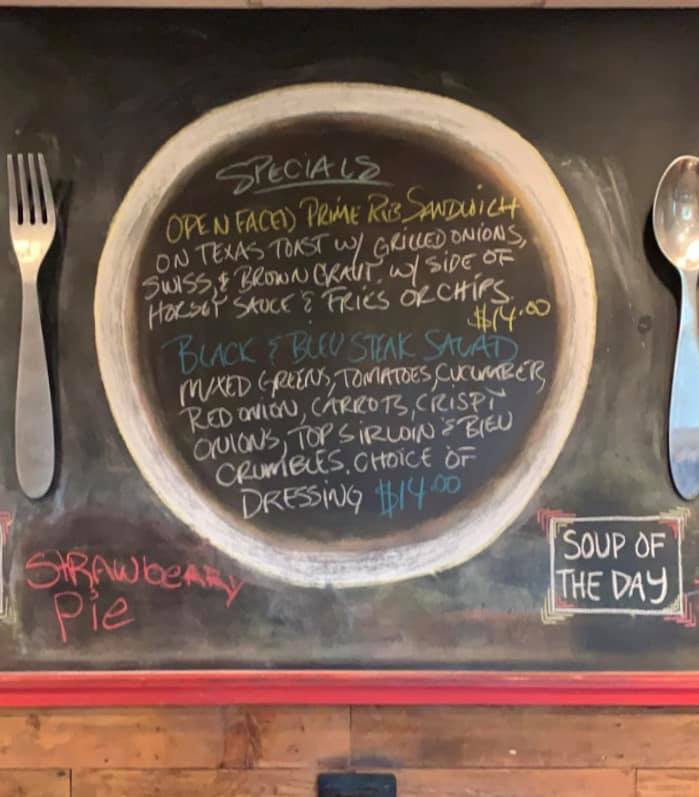 SPECIALS
OPEN FACED PRIME RIB SANDWICH
ON TEXAS TOAST W/ GRILLED ONIONS,
SWISS, & BROWN GRAVY. W/ SIDE OF
HORSEY SAUCE & FRIES OR CHIPS.
$14.00
BLACK & BLEU STEAK SALAD
MIXED GREENS, TOMATOES, CUCUMBER,
RED ONION, CARROTS, CRISPY
ONIONS, TOP SIRLOIN & BLEU
CRUMBLES. CHOICE OF
DRESSING $14.00
STRAWBERRY
Pie
SOUP OF
THE DAY